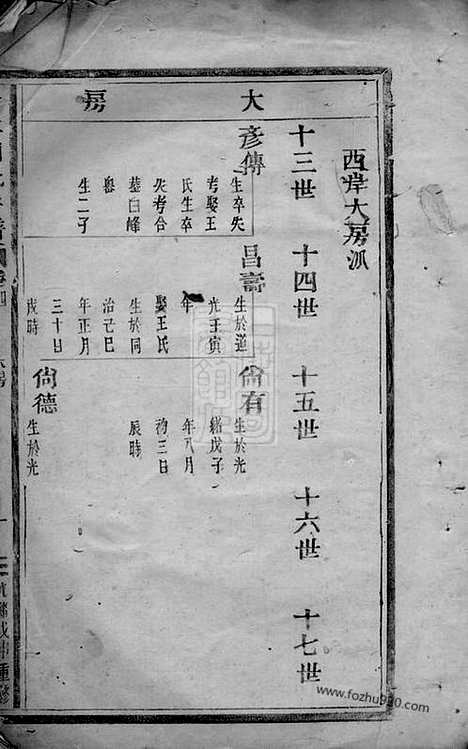 大房
西岸大房泒
十三世 十四世 十五世 十六世 十七世
彦傳
生卒失
考娶王
氏生卒
失考合
塟白峰
嶴
生二子
昌壽
生於道
光壬寅
年
娶王氏
生於同
治己巳
年正月
三十日
戌時
尙有
生於光
緒戊子
年八月
初三日
辰時
尙德
生於光
www.fozhu920.com